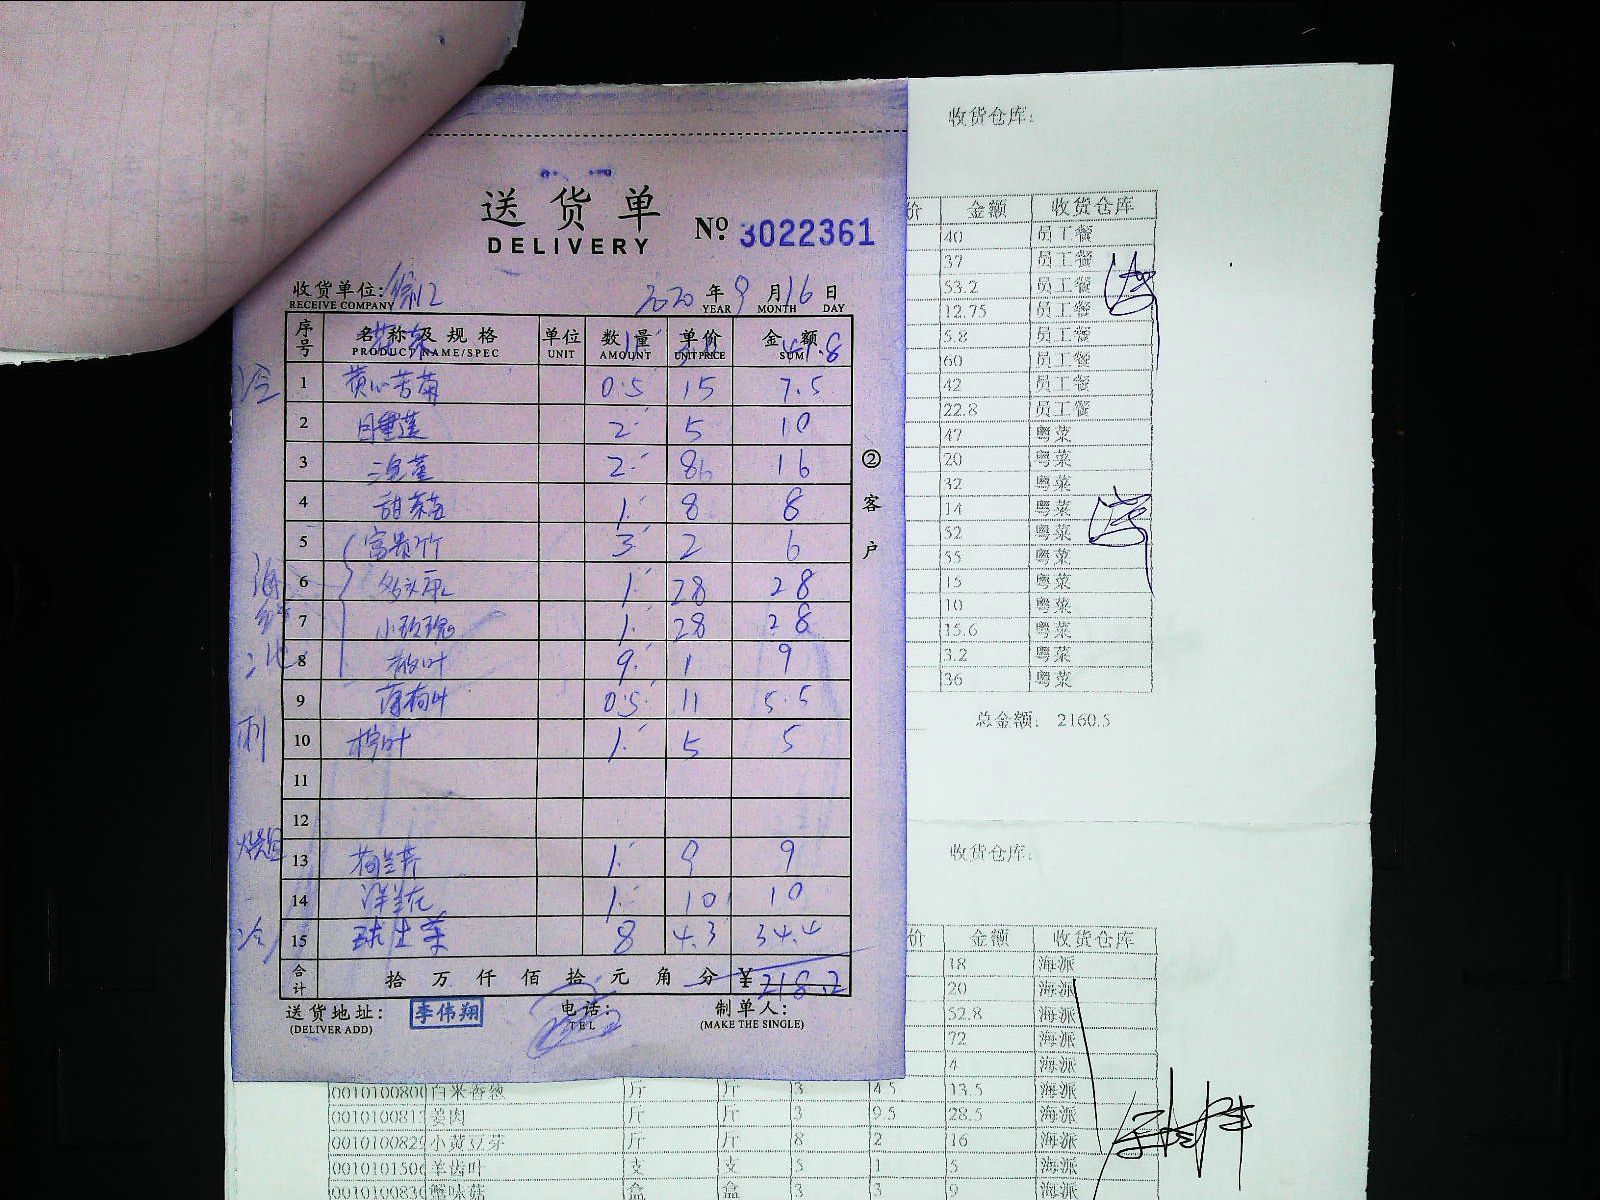 送货单
DELIVERY
№ 3022361
收货单位:
RECEIVE COMPANY
2020 年 9 月 16 日
YEAR MONTH DAY
序号 名称及规格 单位 数量 单价 金额
PRODUCT NAME/SPEC UNIT AMOUNT UNIT PRICE SUM
41.8
冷 1 黄心苦菊 0.5 15 7.5
2 2 5 10
3 2 8 16
4 1 8 8
5 富贵竹 3 2 6
6 1 28 28
7 小玫瑰 1 28 28
8 散叶 9 1 9
9 薄荷叶 0.5 11 5.5
刺 10 柠叶 1 5 5
11
12
13 荷兰芹 1 9 9
14 洋兰花 1 10 10
冷 15 球生菜 8 4.3 34.4
合计 拾 万 仟 佰 拾 元 角 分 ¥ 218.2
② 客户
送货地址: 李伟翔 电话: 制单人:
(DELIVER ADD) TEL (MAKE THE SINGLE)
收货仓库:
价 金额 收货仓库
40 员工餐
37 员工餐
53.2 员工餐
12.75 员工餐
5.8 员工餐
60 员工餐
42 员工餐
22.8 员工餐
47 粤菜
20 粤菜
32 粤菜
14 粤菜
52 粤菜
55 粤菜
15 粤菜
10 粤菜
15.6 粤菜
3.2 粤菜
36 粤菜
总金额: 2160.5
收货仓库:
价 金额 收货仓库
18 海派
20 海派
52.8 海派
72 海派
4 海派
0010100800 白米香葱 斤 斤 3 4.5 13.5 海派
001010081 姜肉 斤 斤 3 9.5 28.5 海派
001010082 小黄豆芽 斤 斤 8 2 16 海派
001010150 羊齿叶 支 支 5 1 5 海派
001010083 蟹味菇 盒 盒 3 3 9 海派